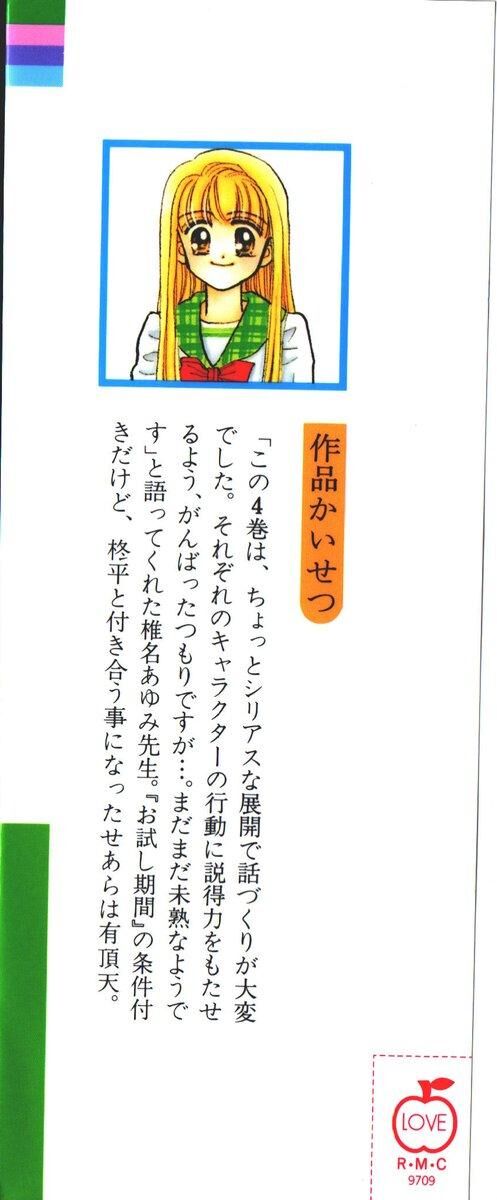 作品かいせつ
「この4巻は、ちょっとシリアスな展開で話づくりが大変
でした。それぞれのキャラクターの行動に説得力をもたせ
るよう、がんばったつもりですが…。まだまだ未熟なようで
す」と語ってくれた椎名あゆみ先生。『お試し期間』の条件付
きだけど、柊平と付き合う事になったせあらは有頂天。
LOVE
R・M・C
9709